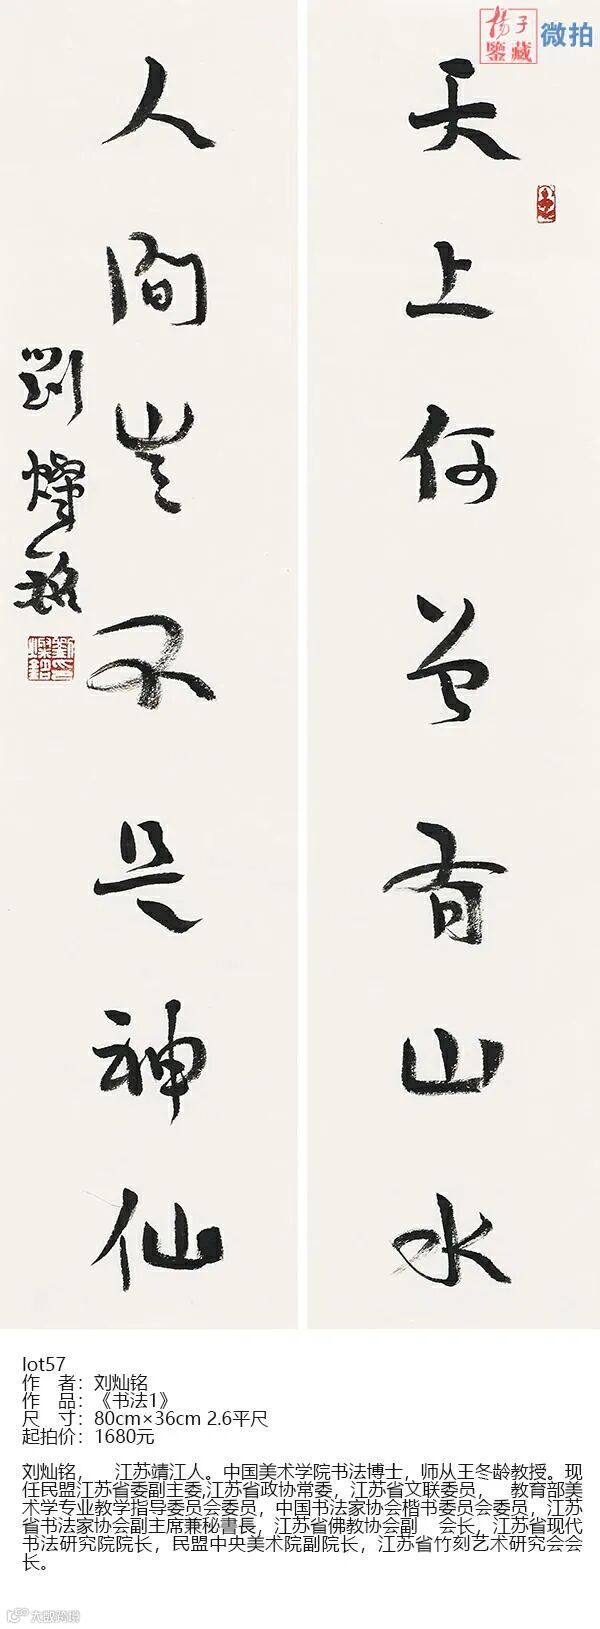 揚子
鑒藏
微拍
天上何曾有山水
人间岂不是神仙
劉燦銘
劉
燦銘
lot57
作　者：刘灿铭
作　品：《书法1》
尺　寸：80cm×36cm 2.6平尺
起拍价：1680元
刘灿铭，　江苏靖江人。中国美术学院书法博士，师从王冬龄教授。现
任民盟江苏省委副主委,江苏省政协常委，江苏省文联委员，　教育部美
术学专业教学指导委员会委员，中国书法家协会楷书委员会委员，江苏
省书法家协会副主席兼秘書長，江苏省佛教协会副　会长，江苏省现代
书法研究院院长，民盟中央美术院副院长，江苏省竹刻艺术研究会会
长。